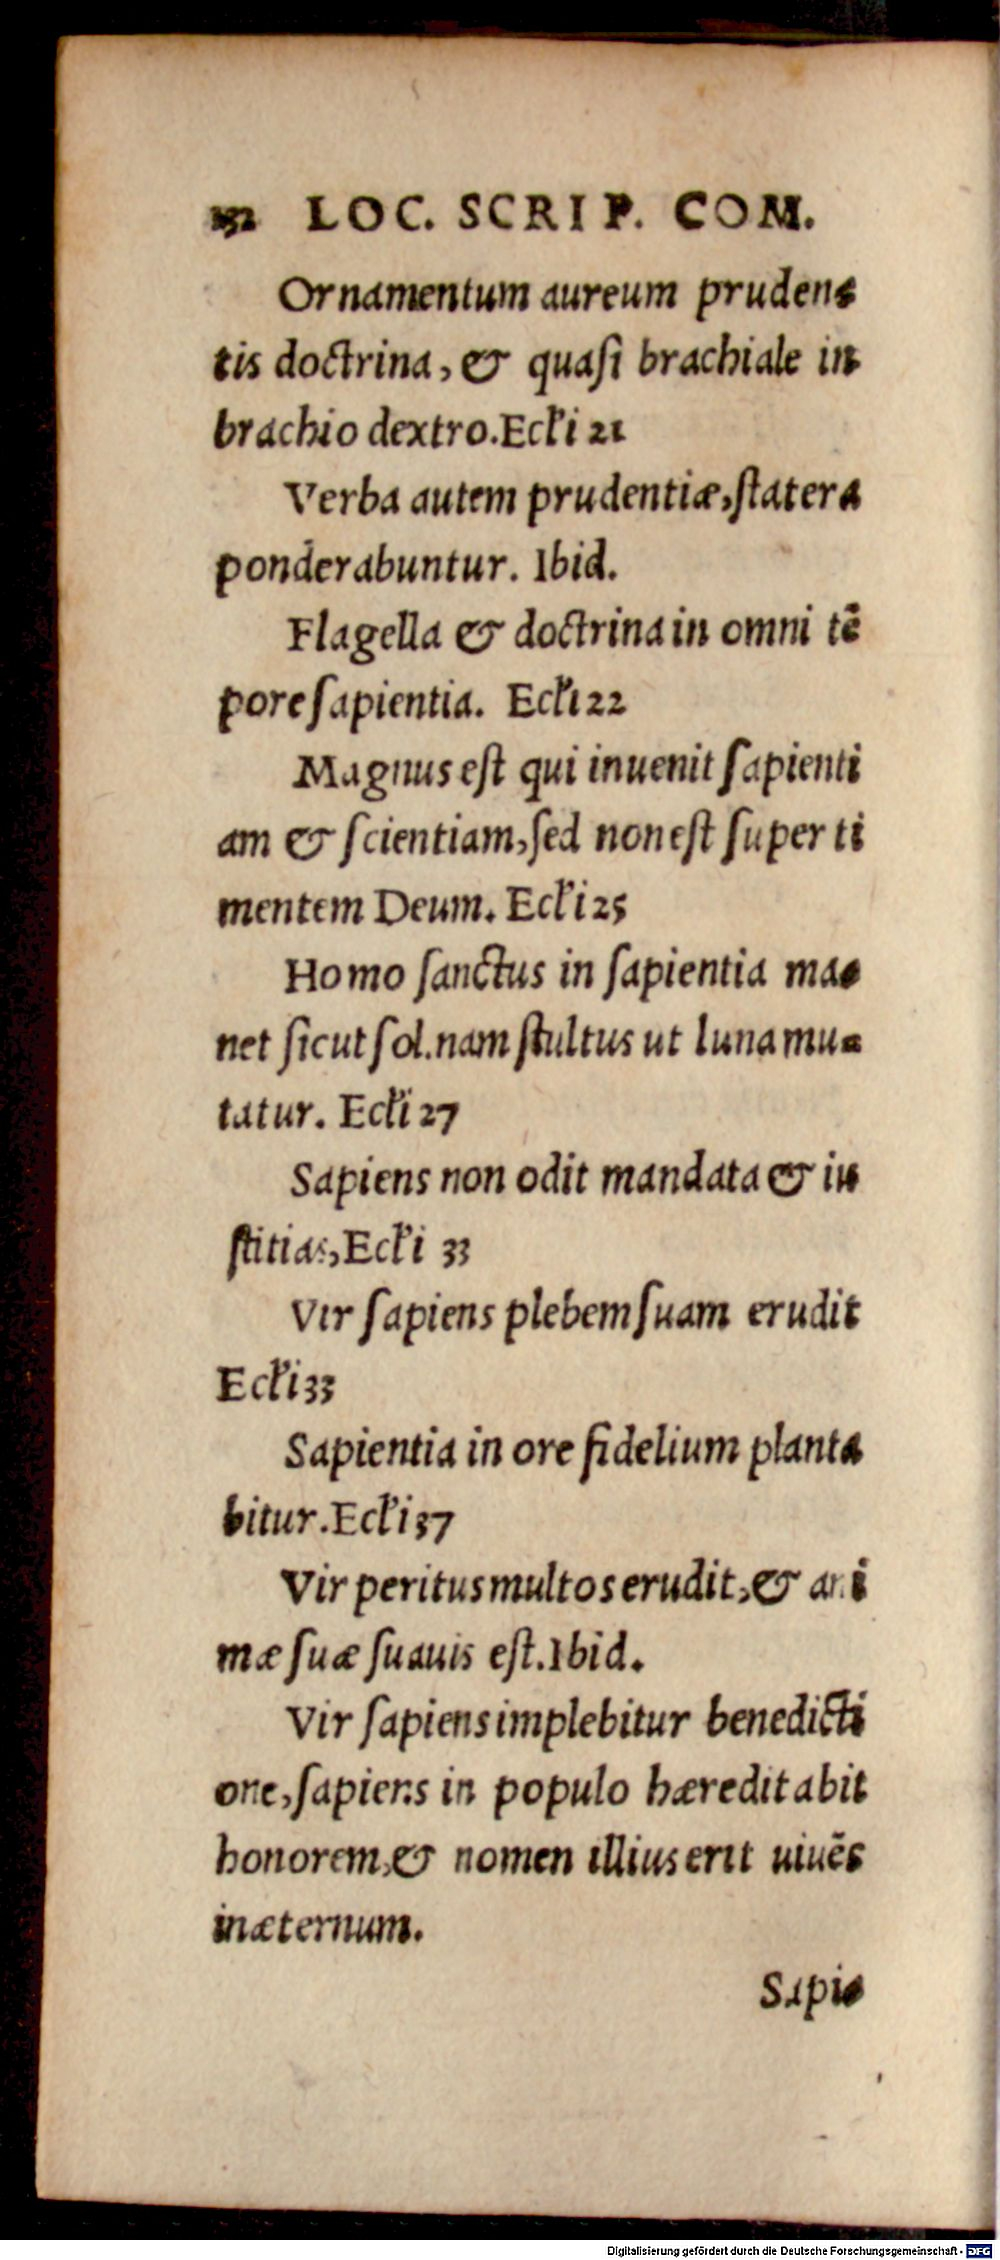 LOC. SCRIP. COM.
Ornamentum aureum pruden-
tis doctrina, & quaſi brachiale in
brachio dextro. Eccľi 21
Verba autem prudentiæ, ſtatera
ponderabuntur. Ibid.
Flagella & doctrina in omni tē
pore ſapientia. Ecľi 22
Magnus est qui inuenit ſapienti
am & ſcientiam, ſed non eſt ſuper ti
mentem Deum. Ecľi 25
Homo ſanctus in ſapientia ma-
net ſicut ſol. nam ſtultus ut luna mu-
tatur. Ecľi 27
Sapiens non odit mandata & iu
ſtitias, Ecľi 33
Vir ſapiens plebem ſuam erudit
Ecľi 33
Sapientia in ore fidelium planta
bitur. Ecľi 37
Vir peritus multos erudit, & ani
mæ ſuæ ſuauis eſt. Ibid.
Vir ſapiens implebitur benedicti
one, ſapiens in populo hæreditabit
honorem, & nomen illius erit uiuēs
in æternum.
Sapie
Digitalisierung gefördert durch die Deutsche Forschungsgemeinschaft - DFG